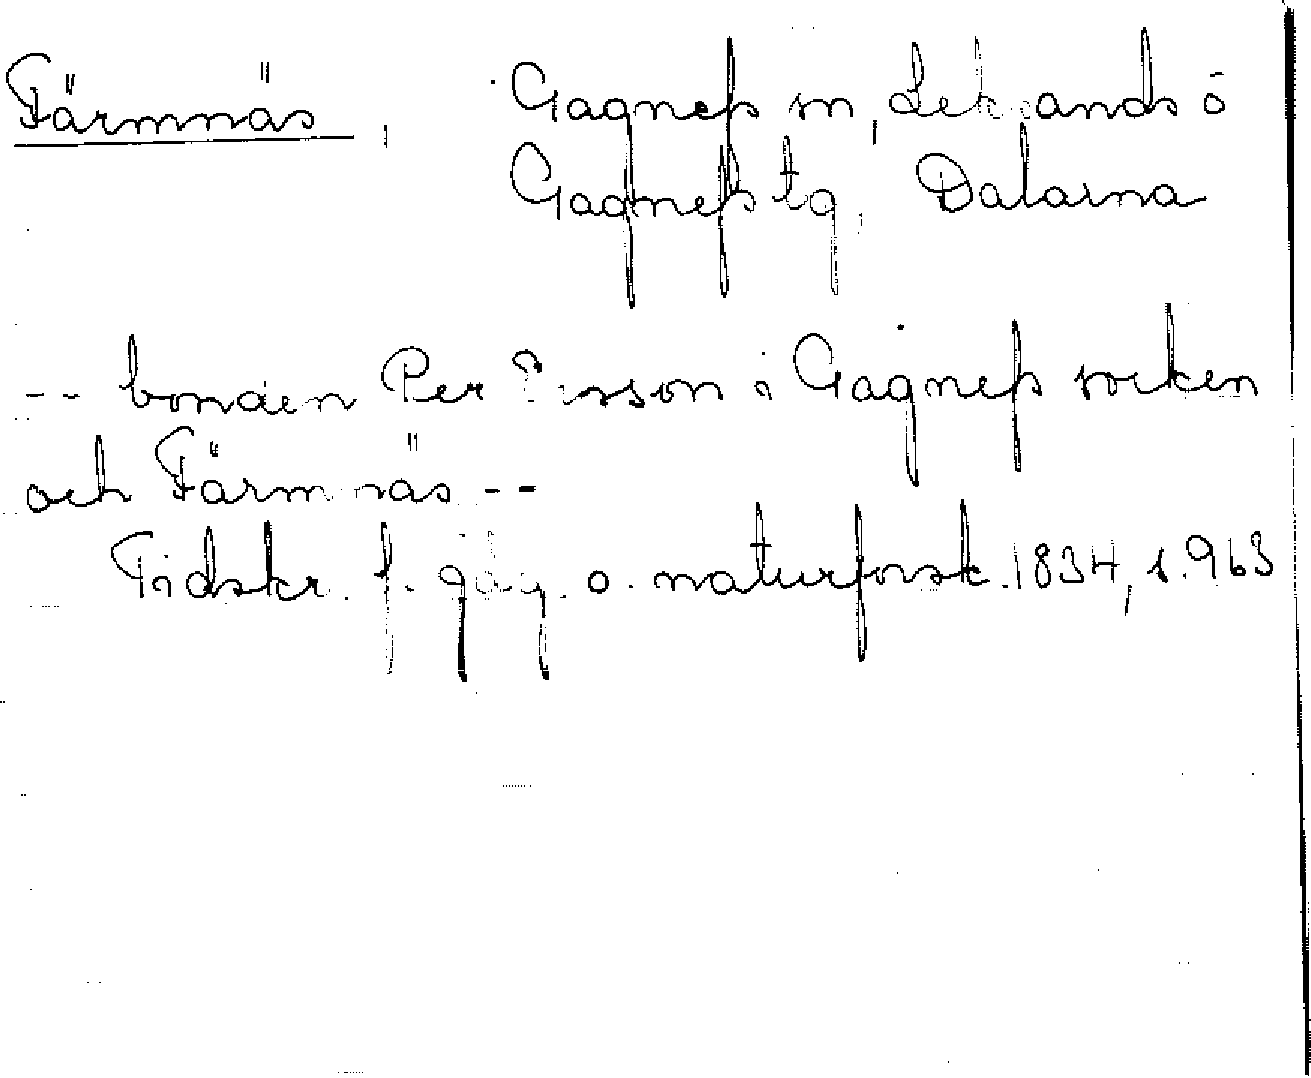 Färmnäs, Gagnefs sn, Leksands o
Gagnefs tg, Dalarna
-- bonden Per Ersson i Gagnefs socken
och Färmnäs --
Tidskr. f. jäg. o. naturforsk. 1834, s. 963